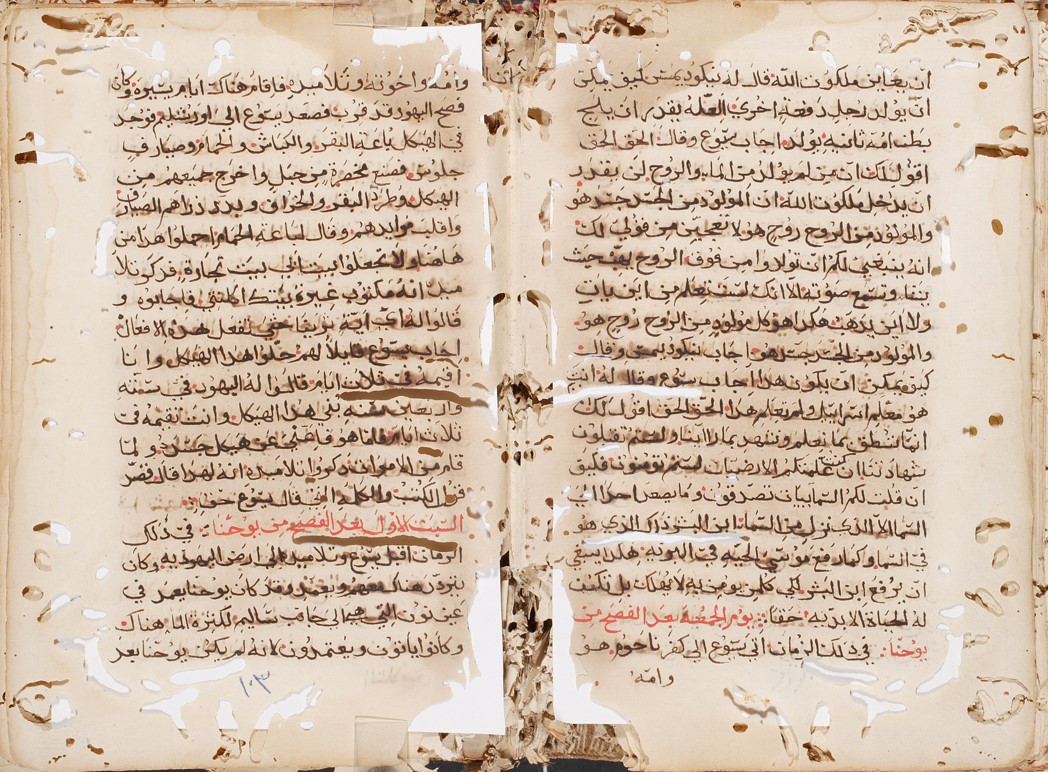 ان يعاين ملكوت الله قال له نيكوديمس كيف يمكن
ان يولد رجل دفعة اخري العله يقدر ان يلج
بطن امه ثانية يولد اجاب يسوع وقال الحق الحق
اقول لك ان من لم يولد من الما والروح لن يقدر
ان يدخل ملكوت الله ان المولود من الجسد جسد هو
والمولود من الروح روح هو لا تعجبن من قولي لك
انه ينبغي لكم ان تولدوا من فوق الروح يهب حيث
يشا وتسمع صوته الا انك لست تعلم من اين ياتي
ولا اين يذهب هكذا هو كل مولود من الروح روح هو
والمولود من الجسد جسد هو اجاب نيكوديمس وقال
كيف يمكن ان يكون هذا اجاب يسوع وقال له انت
هو معلم اسراييل ولم تعلم هذا الحق الحق اقول لك
اننا ننطق بما نعلم ونشهد بما راينا ولستم تقبلون
شهادتنا ان كلمتكم الارضيات لستم تومنون فكيف
ان قلت لكم السماييات تصدقون وما يصعد احدا الي
السما الا الذي نزل من السما ابن البشر ذاك الذي هو
في السما وكما رفع موسي الحيه في البريه هكذا ينبغي
ان يرفع ابن البشر لكي كلمن يومن به لا يهلك بل تكون
له الحياة الابديه حقا يوم الجمعة بعد الفصح من
يوحنا في ذلك الزمان اتي يسوع الي كفر ناحوم هو
وامه
وامه واخوته وتلاميذه فاقام هناك ايام يسيرة وكان
فصح اليهود قد قرب فصعد يسوع الي اورشليم فوجد
في الهيكل باعة البقر والكباش والحمام وصيارف
جلوس فصنع مخصرة من حبل واخرج جميعهم من
الهيكل وطرد البقر والخراف وبدد دراهم الصيارف
واقلب موايدهم وقال لباعة الحمام احملوا هذا من
هاهنا ولا تجعلوا بيت ابي بيت تجارة فذكر تلا
ميذ انه مكتوب غيرة بيتك اكلتني فاجابوه و
قالوا له اي ايه ترينا حتي تفعل هذه الافعال
اجاب يسوع قايلا لهم حلوا هذا الهيكل وانا
اقيمه في ثلاث ايام قالوا له اليهود في ستة
واربعين سنه بني هذا الهيكل وانت تقيمه في
ثلاث ايام فاما هو فاعني عن هيكل جسده ولما
قام من الاموات ذكروا تلاميذه انه لهذا قال فصد
قوا الكتب والكلمة التي قال يسوع حقا
السبت الاول بعد الفصح من يوحنا في ذلك
الزمان اقبل يسوع وتلاميذه الي ارض اليهوديه وكان
يتردد هناك معهم ويعمد وقد كان يوحنا يعمد في
عين نون التي هي الي جانب ساليم لكثرة الما هناك
وكانوا ياتون ويعتمدون لانه لم يكن يوحنا بعد
١٠٣